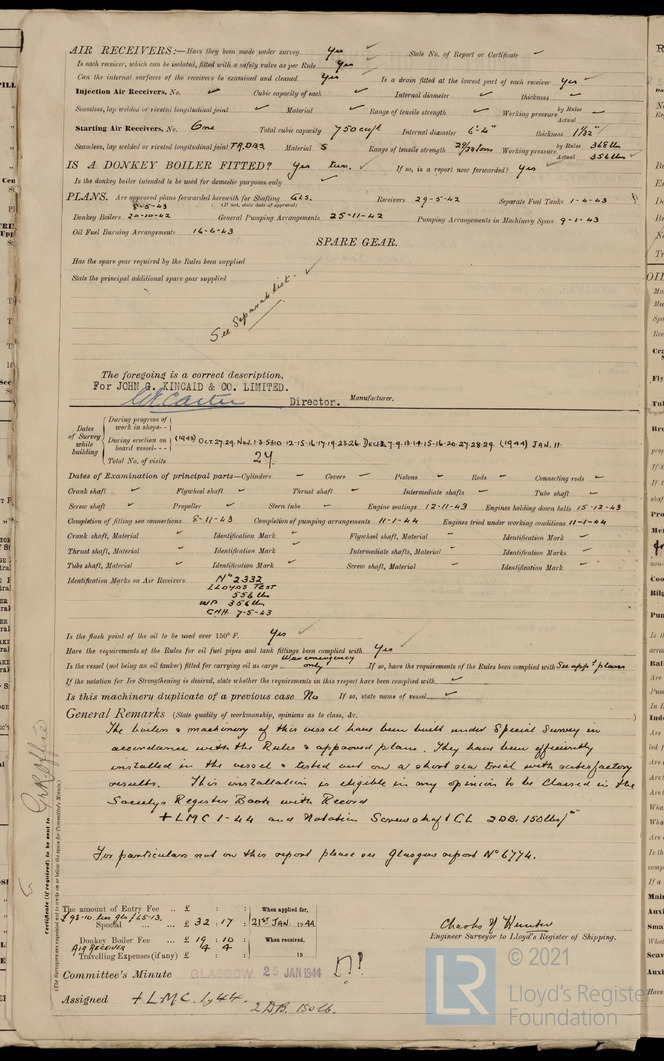 AIR RECEIVERS:—Have they been made under survey Yes ✓ State No. of Report or Certificate ✓
Is each receiver, which can be isolated, fitted with a safety valve as per Rule Yes ✓
Can the internal surfaces of the receivers be examined and cleaned Yes ✓ Is a drain fitted at the lowest part of each receiver Yes ✓
Injection Air Receivers, No. ✓ Cubic capacity of each ✓ Internal diameter ✓ thickness ✓
Seamless, lap welded or riveted longitudinal joint ✓ Material ✓ Range of tensile strength ✓ Working pressure by Rules ✓ Actual
Starting Air Receivers, No. One Total cubic capacity 750 cuft Internal diameter 6'-4" thickness 1 1/32"
Seamless, lap welded or riveted longitudinal joint TR.DBS Material S Range of tensile strength 29/33 tons Working pressure by Rules 368 lbs Actual 356 lbs ✓
IS A DONKEY BOILER FITTED? Yes two. ✓ If so, is a report now forwarded? Yes ✓
Is the donkey boiler intended to be used for domestic purposes only ✓
PLANS. Are approved plans forwarded herewith for Shafting GLS. Receivers 29-5-42 Separate Fuel Tanks 1-4-43
8-5-43 (If not, state date of approval)
Donkey Boilers 20-10-42 General Pumping Arrangements 25-11-42 Pumping Arrangements in Machinery Space 9-1-43
Oil Fuel Burning Arrangements 16-4-43
SPARE GEAR.
Has the spare gear required by the Rules been supplied
State the principal additional spare gear supplied
See Separate list. ✓
The foregoing is a correct description,
For JOHN G. KINCAID & CO. LIMITED.
Director. Manufacturer.
Dates of Survey while building
During progress of work in shops--
During erection on board vessel--- (1943) Oct.27.29. Nov.1.3.5.8.10.12.15.16.17.19.23.26. Dec.1.2.7.9.13.14.15.16.20.27.28.29. (1944) JAN. 11.
Total No. of visits 27
Dates of Examination of principal parts—Cylinders ✓ Covers ✓ Pistons ✓ Rods ✓ Connecting rods ✓
Crank shaft ✓ Flywheel shaft ✓ Thrust shaft ✓ Intermediate shafts ✓ Tube shaft ✓
Screw shaft ✓ Propeller ✓ Stern tube ✓ Engine seatings 12-11-43 Engines holding down bolts 15-12-43
Completion of fitting sea connections 5-11-43 Completion of pumping arrangements 11-1-44 Engines tried under working conditions 11-1-44
Crank shaft, Material ✓ Identification Mark ✓ Flywheel shaft, Material ✓ Identification Mark ✓
Thrust shaft, Material ✓ Identification Mark ✓ Intermediate shafts, Material ✓ Identification Marks ✓
Tube shaft, Material ✓ Identification Mark ✓ Screw shaft, Material ✓ Identification Mark ✓
Identification Marks on Air Receivers No 2332
LLOYDS TEST
556 lbs
WP 356 lbs
CNH 7-5-43
Is the flash point of the oil to be used over 150° F. Yes ✓
Have the requirements of the Rules for oil fuel pipes and tank fittings been complied with Yes ✓
Is the vessel (not being an oil tanker) fitted for carrying oil as cargo War emergency only If so, have the requirements of the Rules been complied with See appd plans
If the notation for Ice Strengthening is desired, state whether the requirements in this respect have been complied with ✓
Is this machinery duplicate of a previous case No If so, state name of vessel ✓
General Remarks (State quality of workmanship, opinions as to class, &c.
The boilers & machinery of this vessel have been built under Special Survey in
accordance with the Rules & approved plans. They have been efficiently
installed in the vessel & tested out on a short sea trial with satisfactory
results. This installation is eligible in my opinion to be Classed in the
Society's Register Book with Record
+ LMC 1-44 and Notation Screwshaft CL 2DB. 150 lbs/□"
For particulars not on this report please see Glasgow report No 6774.
Certificate (if required) to be sent to Gnk Office
(The Surveyors are requested not to write on or below the space for Committee's Minute.)
The amount of Entry Fee .. £ : : When applied for,
Special ... ... £ 32 : 17 : 21ST JAN. 1944
Donkey Boiler Fee ... £ 19 : 10 When received,
Air Receiver 4 4
Travelling Expenses (if any) £ : : 19
Charles N. Hunter
Engineer Surveyor to Lloyd's Register of Shipping.
Committee's Minute GLASGOW 25 JAN 1944
Assigned + LMC. 1,44.
2 D.B. 150 lb.
© 2021
LR
Lloyd's Registe
Foundation